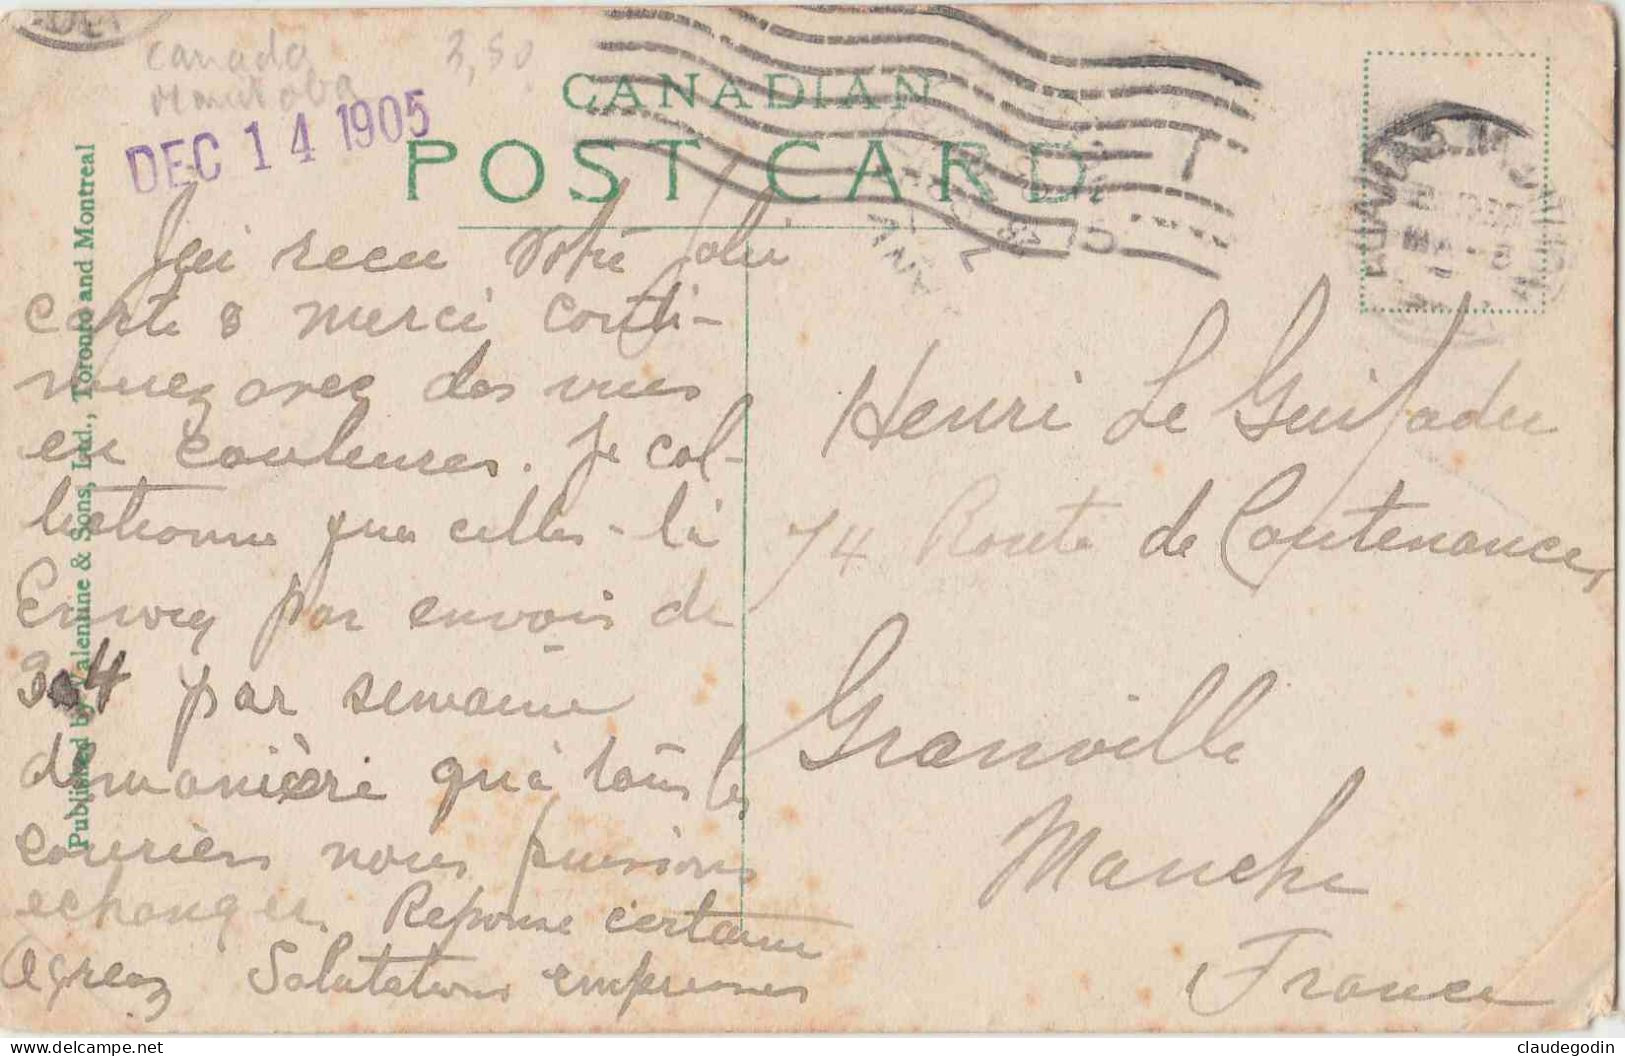 Canada
Manitoba
3,50
DEC 14 1905
CANADIAN
POST CARD
Published by Valentine & Sons, Ltd., Toronto and Montreal
J'ai recu votre jolie
carte & merci conti-
nuez avec des vues
en couleures. Je col-
lectionne que celles-là
Envoy par envois de
3 4 par semaine
de manière qu'à tous les
courriers nous puissions
echanger Reponse certaine
Agreez Salutations empresses
Henri Le
74 Route de Coutances,
Granville
Manche
France
claudegodin